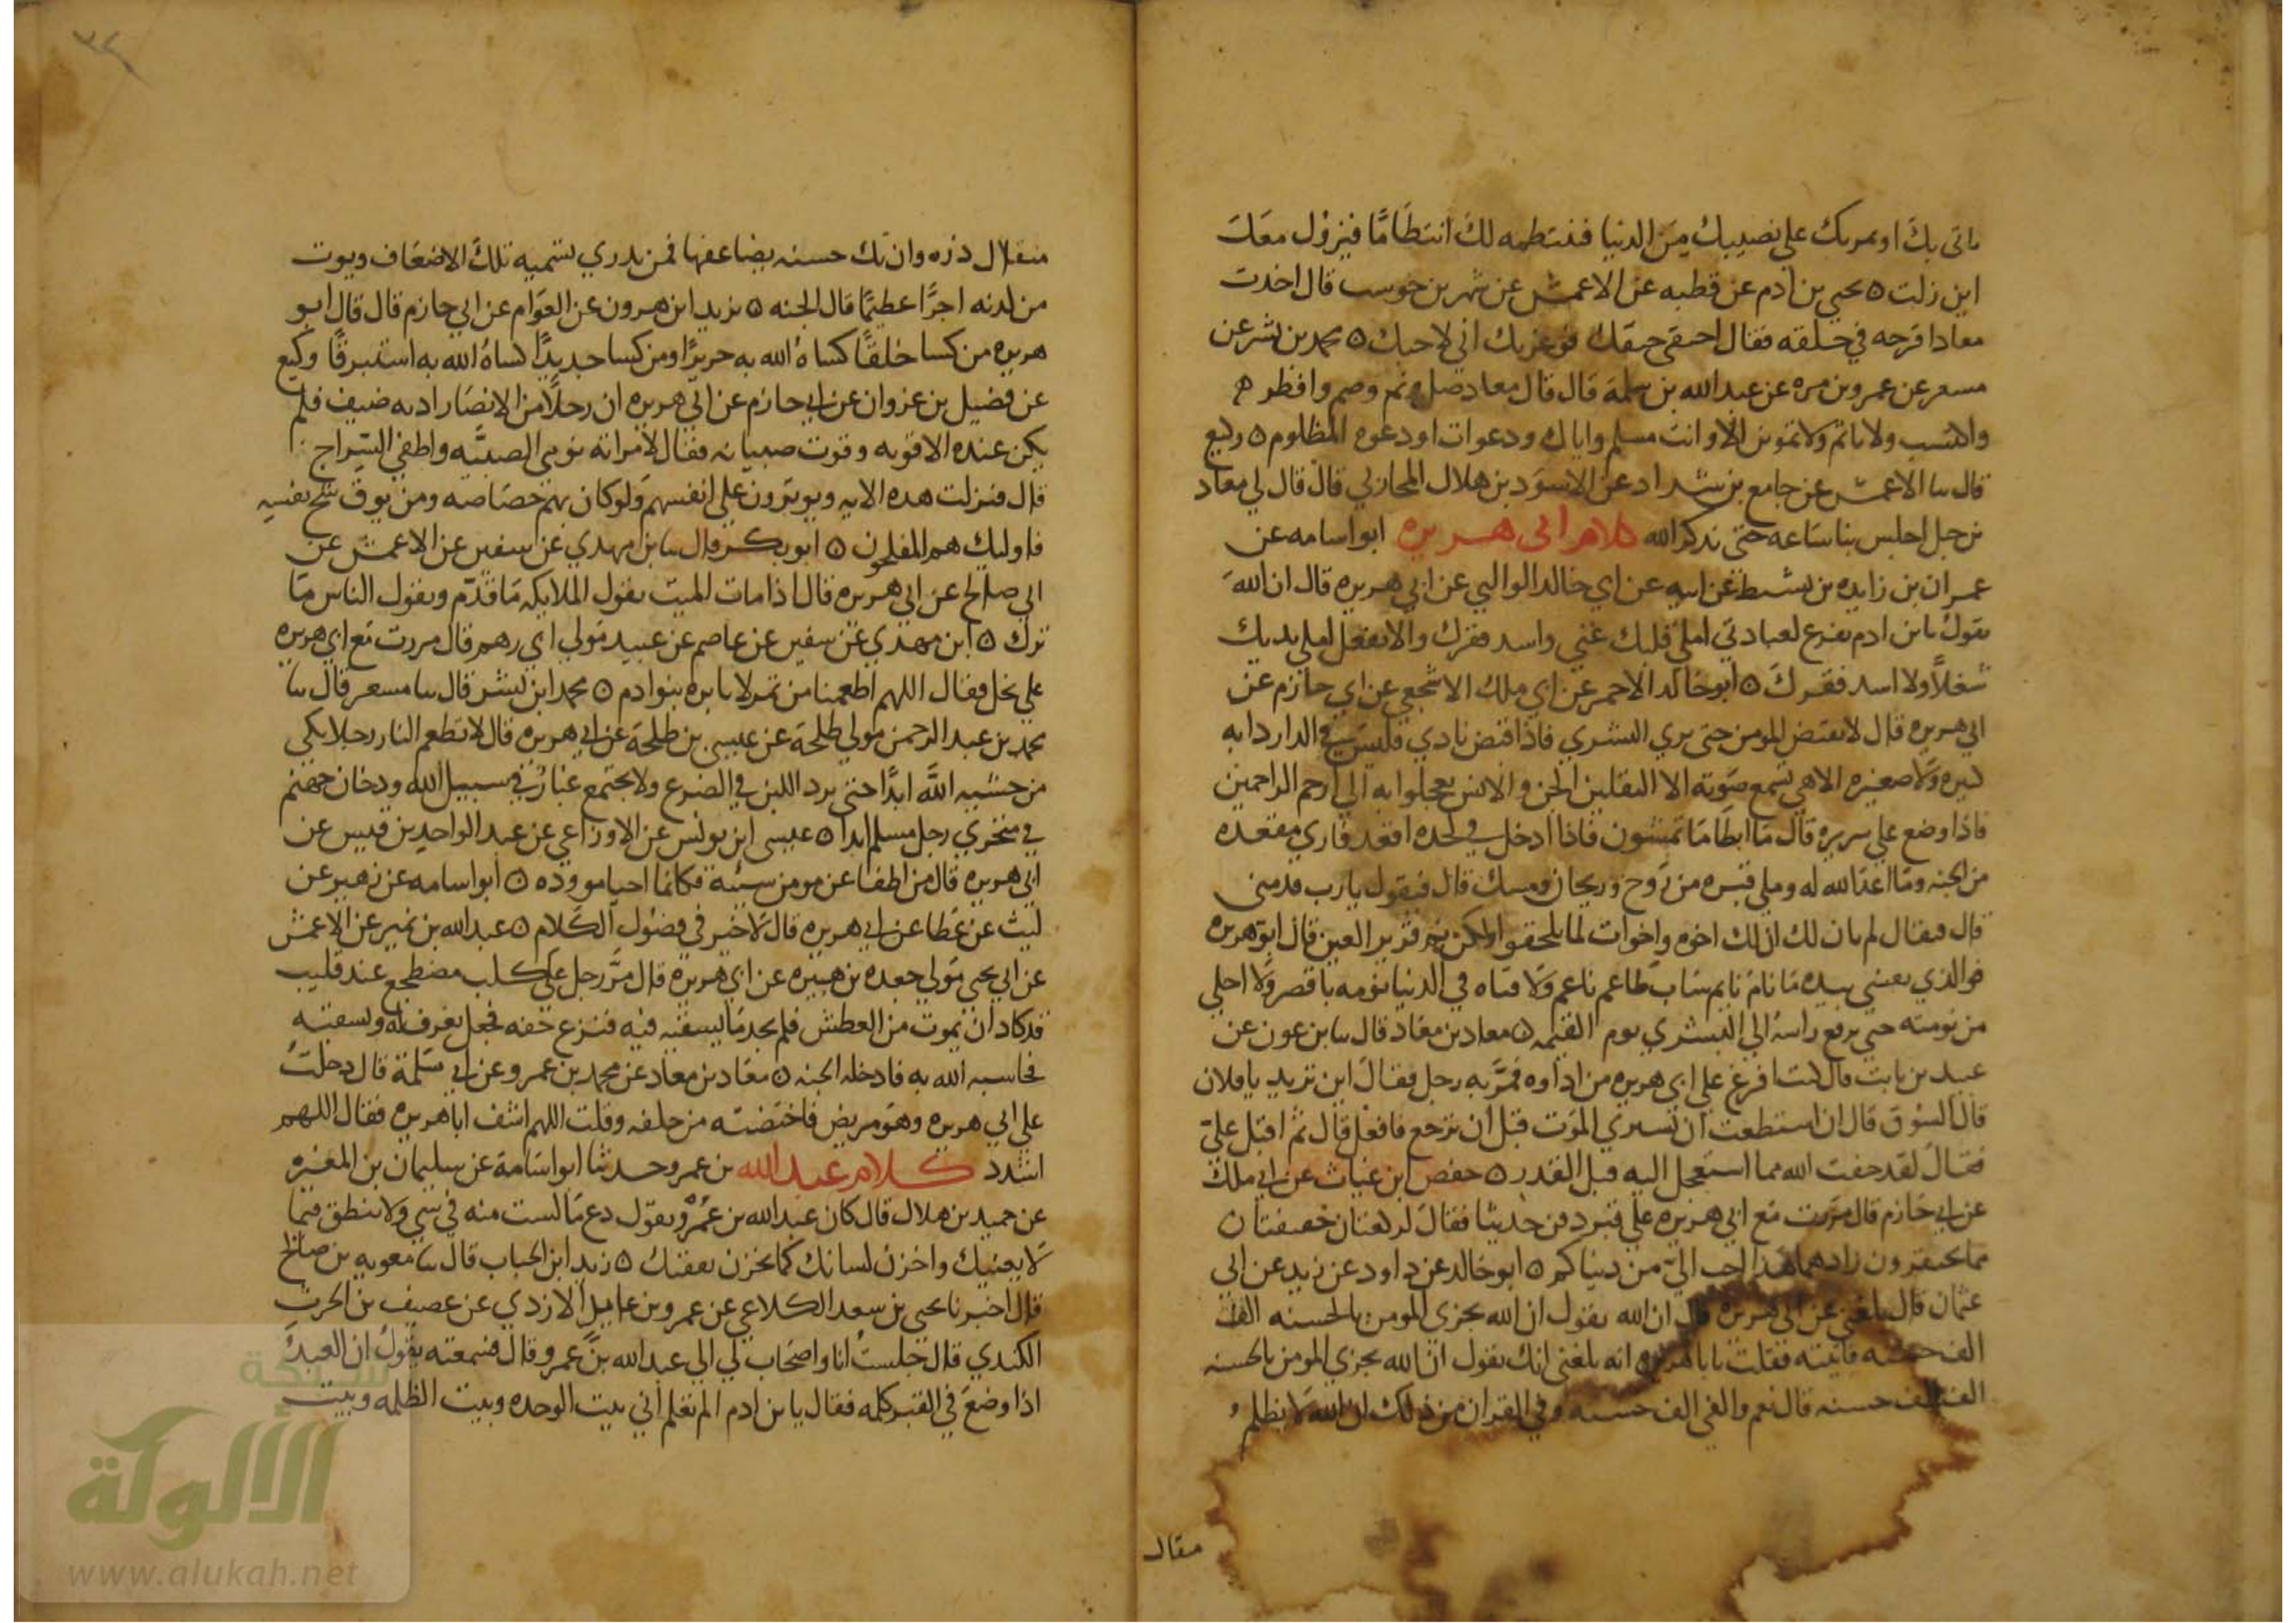 ياتي بك او يمر بك على نصيبك من الدنيا فتنتظمه لك انتظاما فيزول معك
اين زلت ٥ يحيى بن ادم عن قطبه عن الاعمش عن شهر بن حوسب قال اخذت
معاذا قرحه في حلقه فقال اخنقي خنقك فوعزتك اني لاحبك ٥ محمد بن بشر عن
مسعر عن عمرو بن مره عن عبد الله بن سلمة قال قال معاد صل ونم وصم وافطر
واكتسب ولا ياثم ولا تموتن الا وانت مسلم واياك ودعوات او دعوه المظلوم ٥ وكيع
قال سا الاعمش عن جامع بن شداد عن الاسود بن هلال المحاربي قال قال لي معاد
بن جبل اجلس بنا ساعه حتى نذكر الله كلام ابى هريره ابو اسامه عن
عمران بن زايده بن نشيط عن ابيه عن ابي خالد الوالبي عن ابي هريره قال ان الله
يقول يا بن ادم تفرغ لعبادتي املي قلبك غنى واسد فقرك والا تفعل املى يديك
شغلا ولا اسد فقرك ٥ ابو خالد الاحمر عن ابي ملك الاشجعي عن ابي حازم عن
ابي هريره قال لا يقبض المومن حتى يرى البشري فاذا قبض نادي فليس في الدار دابه
كبيره ولا صغيره الا هي تسمع صوته الا الثقلين الجن والانس يعجلوا به الي ارحم الراحمين
فاذا وضع على سريره قال ما ابطا ما تمشون فاذا ادخل في لحده اقعد فاري مقعده
من الجنه وما اعد الله له وملي قبره من روح وريحان ومسك قال فيقول يا رب قدمني
قال فيقال لم يان لك ان لك اخوه واخوات لما يلحقوا ولكن نم قرير العين قال ابو هريره
فوالذي نفسي بيده ما نام نايم شاب طاعم ناعم ولا فتاه في الدنيا نومه باقصر ولا احلى
من نومته حتى يرفع راسه الي البشري يوم القيمه ٥ معاد بن معاد قال سا بن عون عن
عبيد بن باب قال كنت افرغ على ابي هريره من اداوه فمر به رجل فقال اين تريد يا فلان
قال السوق قال ان استطعت ان تشتري الموت قبل ان ترجع فافعل قال ثم اقبل علي
فقال لقد خفت الله مما استعجل اليه قبل القدر ٥ حفص ابن غياث عن ابي ملك
عن ابي حازم قال مررت مع ابي هريره على قبر دفن حديثا فقال لركعتان خفيفتان
مما تحتقرون زادهما هذا احب الي من دنياكم ٥ ابو خالد عن داود عن زيد عن ابي
عثمان قال بلغني عن ابي هريره قال ان الله يقول ان الله يجزي المومن بالحسنه الف
الف حسنه فاتيته فقلت يا با هريره انه بلغني انك تقول ان الله يجزي المومن بالحسنه
الف الف حسنه قال نعم والفي الف حسنه وفي القران من ذلك ان الله لا يظلم
مثقال
مثقال ذره وان تك حسنه يضاعفها فمن يدري تسميه تلك الاضعاف ويوت
من لدنه اجرا عظيما قال الجنه ٥ يزيد ابن هرون عن العوام عن ابي حازم قال قال ابو
هريره من كسا خلقا كساه الله به حريرا ومن كسا جديدا كساه الله به استبرقا وكيع
عن فضيل بن غزوان عن ابي حازم عن ابي هريره ان رجلا من الانصار ادبه ضيف فلم
يكن عنده الا قوته وقوت صبيانه فقال لامراته نومي الصبيه واطفي السراج
قال فنزلت هذه الايه ويوثرون على انفسهم ولو كان بهم خصاصه ومن يوق شح نفسه
فاوليك هم المفلحون ٥ ابو بكر قال سا بن مهدي عن سفين عن الاعمش عن
ابي صالح عن ابي هريره قال اذا مات الميت تقول الملايكه ما قدم ويقول الناس ما
ترك ٥ ابن مهدي عن سفين عن عاصم عن عبيد مولي ابي رهم قال مررت مع ابي هريره
على نخل فقال اللهم اطعمنا من تمر لا يابره بنو ادم ٥ محمد ابن بشر قال سا مسعر قال سا
محمد بن عبد الرحمن مولي طلحة عن عيسى بن طلحة عن ابي هريره قال لا تطعم النار رجلا بكى
من خشيه الله ابدا حتى يرد اللبن في الضرع ولا يجتمع غبار في سبيل الله ودخان جهنم
في منخري رجل مسلم ابدا ٥ عيسى ابن يونس عن الاوزاعي عن عبد الواحد بن قيس عن
ابي هريره قال من اطفا عن مومن سيئة فكانما احيا مووده ٥ ابو اسامه عن زهير عن
ليث عن عطا عن ابي هريره قال لا خير في فضول الكلام ٥ عبد الله بن نمير عن الاعمش
عن ابي يحيى مولي جعده بن هبيره عن ابي هريره قال مر رجل على كلب مضطجع عند قليب
قد كاد ان يموت من العطش فلم يجد ما يسقيه فيه فنزع خفه فجعل يغرف له ويسقيه
فحاسبه الله به فادخله الجنه ٥ معاد بن معاد عن محمد بن عمرو عن ابي سلمة قال دخلت
على ابي هريره وهو مريض فاختضنته من خلفه وقلت اللهم اشف ابا هريره فقال اللهم
اشدد كلام عبد الله بن عمرو حدثنا ابو اسامة عن سليمان بن المغيره
عن حميد بن هلال قال كان عبد الله بن عمرو يقول دع ما لست منه في شي ولا تنطق فيما
لا يعنيك واخزن لسانك كما تخزن نفقتك ٥ زيد ابن الحباب قال سا معويه بن صالح
قال اخبرنا يحيى بن سعد الكلاعي عن عمرو بن عايد الازدي عن غضيف بن الحرث
الكندي قال جلست انا واصحاب لي الي عبد الله بن عمرو قال فسمعته يقول ان العبد
اذا وضع في القبر كلمه فقال يا بن ادم الم تعلم اني بيت الوحده وبيت الظلمه وبيت
شبكة
الألوكة
www.alukah.net